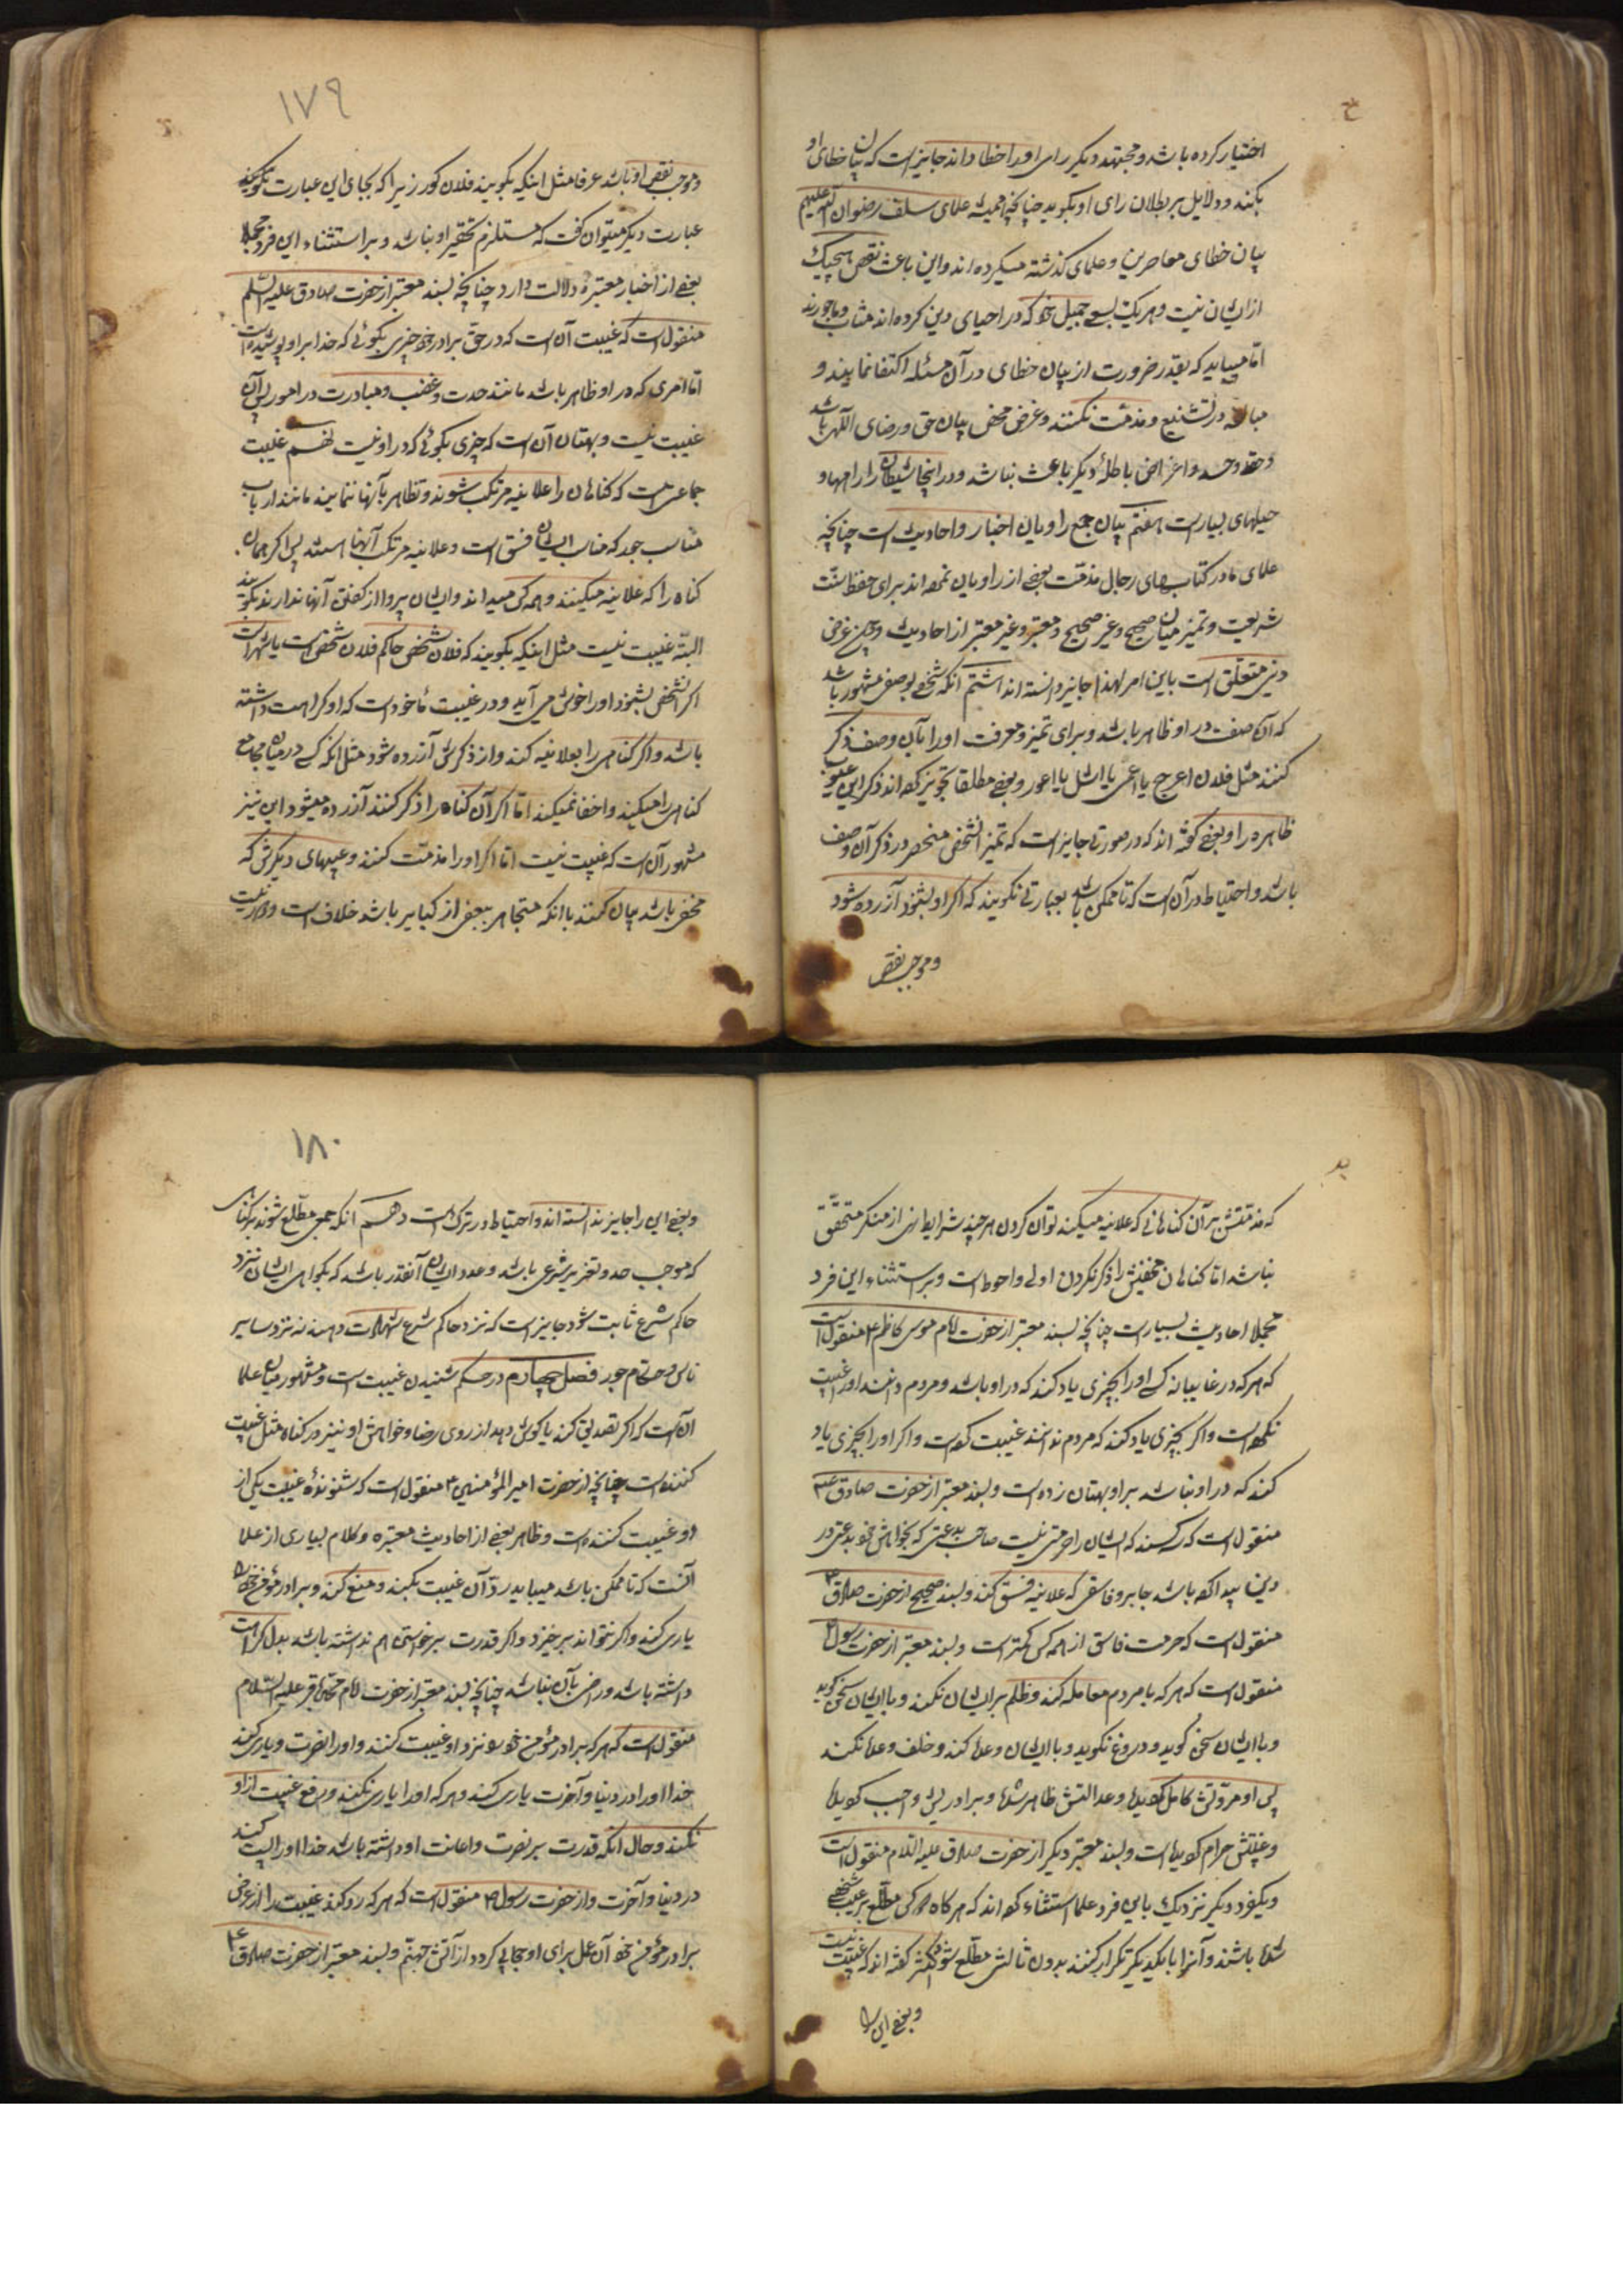 اختیار کرده باشد و مجتهد دیگر رای او را خطا داند جایز است که بیان خطای او
بکند و دلایل بر بطلان رای او بگوید چنانچه همیشه علمای سلف رضوان الله علیهم
بیان خطای معاصرین و علمای گذشته میکرده‌اند و این باعث نقص هیچیک
از ایشان نیست و هر یک بسعی جمیل خود که در احیای دین کرده‌اند مثاب و ماجورند
اما میباید که بقدر ضرورت از بیان خطای در آن مسئله اکتفا نمایند و
مبالغه در تشنیع و مذمت نکنند و غرض محض بیان حق و رضای الهی باشد
و حقد و حسد و اغراض باطلهٔ دیگر باعث نباشد و در اینجا شیطان را راهها و
حیلهای بسیار است هفتم بیان جمع راویان اخبار و احادیث است چنانچه
علمای ما در کتابهای رجال مذمت بعضی از راویان نموده‌اند برای حفظ سنت
شریعت و تمیز میان صحیح و غیر صحیح و معتبر و غیر معتبر از احادیث و چون غرض
دینی متعلق است باین امر لهذا جایز دانسته‌اند هشتم آنکه شخصی بوصفی مشهور باشد
که آن صفت در او ظاهر باشد و برای تمیز و معرفت او را بآن وصف ذکر
کنند مثل فلان اعرج یا اعمی یا اشل یا اعور و بعضی مطلقا تجویز کرده‌اند ذکر این عیوب
ظاهره را و بعضی گفته‌اند که در صورتی جایز است که تمیز آنشخص منحصر در ذکر آن وصف
باشد و احتیاط در آن است که تا ممکن باشد بعبارتی نگویند که اگر او بشنود آزرده شود
و موجب نقص
١٧٩
و موجب نقص او باشد عرفا مثل اینکه بگویند فلان کور زیرا که بجای این عبارت نکوهیده
عبارت دیگر میتوان گفت که مستلزم تحقیر او نباشد و بر استثناء این فرد مجملا
بعضی از اخبار معتبره دلالت دارد چنانچه بسند معتبر از حضرت صادق علیه السلم
منقول است که غیبت آن است که در حق برادر خود چیزی بگوئی که خدا بر او پوشیده است
اما امری که در او ظاهر باشد مانند حدت و غضب و مبادرت در امور پس آن
غیبت نیست و بهتان آن است که چیزی بگوئی که در او نیست نهم غیبت
جماعتی است که گناهان را علانیه مرتکب شوند و تظاهر بآنها نمایند مانند ارباب
مناصب جور که مناصب ایشان فسق است و علانیه مرتکب آنها هستند پس اگر همان
گناه را که علانیه میکنند و همه کس میداند و ایشان پروا از گفتن آنها ندارند بگویند
البته غیبت نیست مثل اینکه بگویند که فلان شخص حاکم فلان شخص است یا شهر است
اگر آنشخص بشنود او را خوش می آید و در غیبت ماخوذ است که او کراهت داشته
باشد و اگر گناهی را بعلانیه کند و از ذکرش آزرده شود مثل آنکه کسی در میان مجامع
گناهی را میکند و اخفا نمیکند اما اگر آن گناه را ذکر کنند آزرده میشود این نیز
مشهور آن است که غیبت نیست اما اگر او را مذمت کنند و عیبهای دیگرش که
مخفی باشد بیان کنند با آنکه متجاهر ببعض از کبایر باشد خلاف است
که مذمتش بر آن گناهانی که علانیه میکند توان کردن هر چند شرایط نهی از منکر متحقق
نباشد اما گناهان مخفیش را ذکر نکردن اولی و احوط است و بر استثناء این فرد
مجملا احادیث بسیار است چنانچه بسند معتبر از حضرت امام موسی کاظم ع منقول است
که هر که در غایبانه کسی او را بچیزی یاد کند که در او باشد و مردم دانند او را غیبت
نکرده است و اگر بچیزی یاد کند که مردم ندانند غیبت کرده است و اگر او را بچیزی یاد
کند که در او نباشد بر او بهتان زده است و بسند معتبر از حضرت صادق ع
منقول است که سه کسند که ایشان را حرمتی نیست صاحب بدعتی که بخواهش خود بدعتی در
دین پیدا کرده باشد جابر و فاسقی که علانیه فسق کند و بسند صحیح از حضرت صادق ع
منقول است که حرمت فاسق از همه کس کمتر است و بسند معتبر از حضرت رسول ص
منقول است که هر که با مردم معامله کند و ظلم بر ایشان نکند و با ایشان سخن گوید
و با ایشان سخن گوید و دروغ نگوید و با ایشان وعده کند و خلف وعده نکند
پس او مروتش کامل گردیده و عدالتش ظاهر شده و برادریش واجب گردیده
و غیبتش حرام گردیده است و بسند معتبر دیگر از حضرت صادق علیه السلام منقول است
و یکفرد دیگر نزدیک باین فرد علما استثناء کرده‌اند که هر گاه دو کس مطلع بر عیب شخصی
شده باشند و آنرا با یکدیگر تکرار کنند بدون ثالثی مطلع شود اکثر گفته‌اند که غیبت نیست
و بعضی این را
١٨٠
و بعضی این را جایز ندانسته‌اند و احتیاط در ترک است دهم آنکه جمعی مطلع شوند بر گناهی
که موجب حد و تعزیر شرعی باشد و عدد ایشان آنقدر باشد که بگواهی ایشان نزد
حاکم شرع ثابت شود جایز است که نزد حاکم شرع شهادت دهند نه نزد سایر
ناس و حکام جور فصل چهارم در حکم شنیدن غیبت است و مشهور میان علما
آن است که اگر تصدیق کند یا گوش دهد از روی رضا و خواهش او نیز در گناه مثل غیبت
کننده است چنانچه از حضرت امیر المؤمنین ع منقول است که شنوندهٔ غیبت یکی از
دو غیبت کننده است و ظاهر بعضی از احادیث معتبره و کلام بسیاری از علما
آنست که تا ممکن باشد میباید رد آن غیبت بکند و منع کند و برادر مؤمن خود را
یاری کند و اگر نتواند برخیزد و اگر قدرت برخواستن هم نداشته باشد بدل کراهت
داشته باشد و راضی بآن نباشد چنانچه بسند معتبر از حضرت امام محمد باقر علیه السلام
منقول است که هر که برادر مؤمن خود نزد او غیبت کنند و او را نصرت و یاری کند
خدا او را در دنیا و آخرت یاری کند و هر که او را یاری نکند و دفع غیبت از او
نکند و حال آنکه قدرت بر نصرت و اعانت او داشته باشد خدا او را پست کند
در دنیا و آخرت و از حضرت رسول ص منقول است که هر که رد کند غیبت را از عرض
برادر مؤمن خود آن عمل برای او حجابی گردد از آتش جهنم و بسند معتبر از حضرت صادق ع